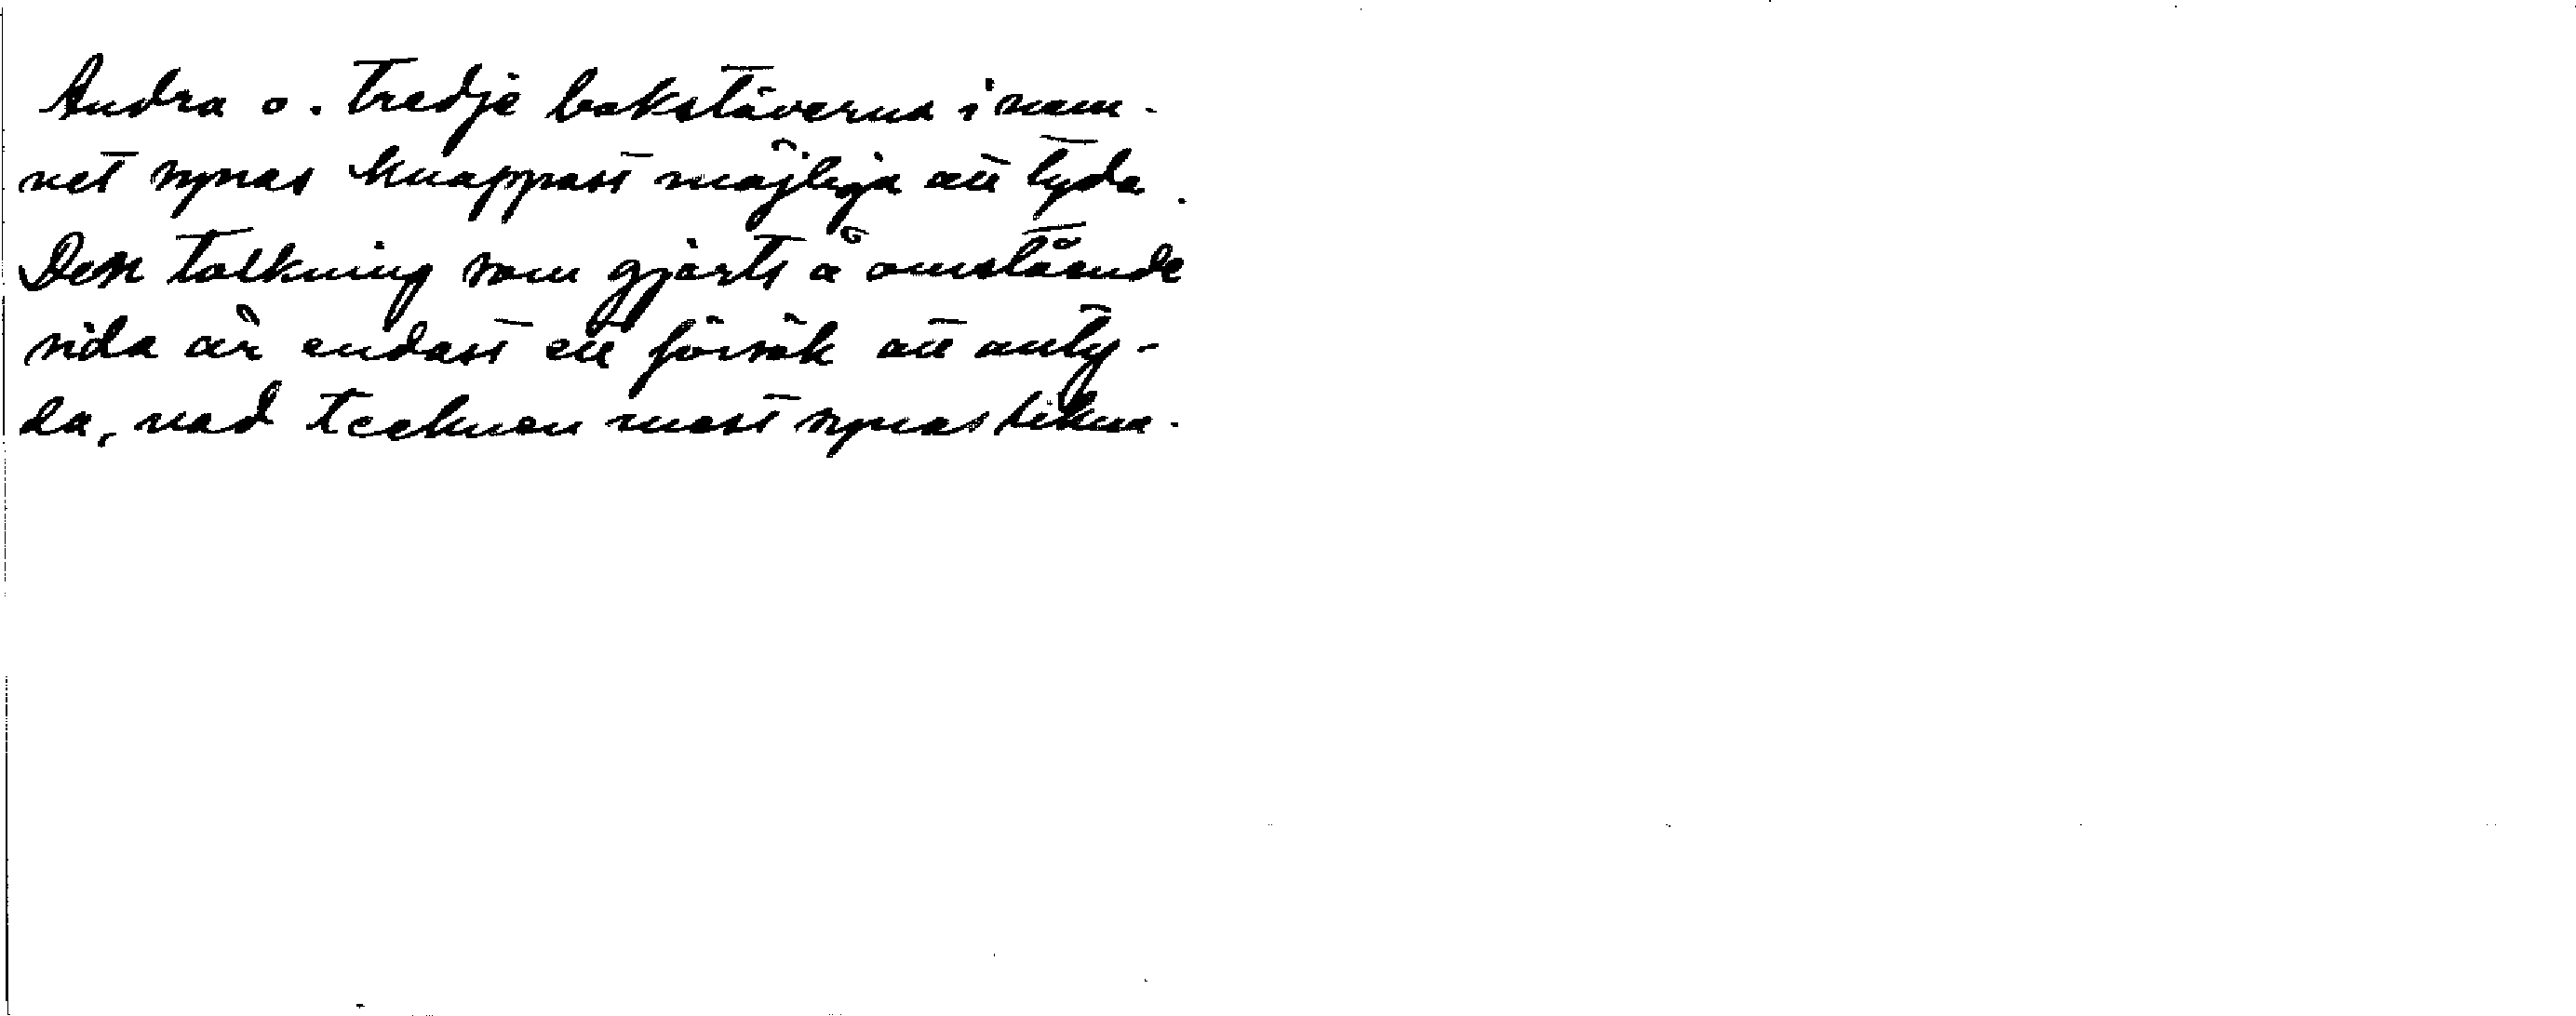 Andra o. tredje bokstäverna i nam-
net synas knappast möjliga att tyda.
Den tolkning som gjorts å omstående
sida är endast ett försök att anty-
da, vad tecknen mest synas likna.